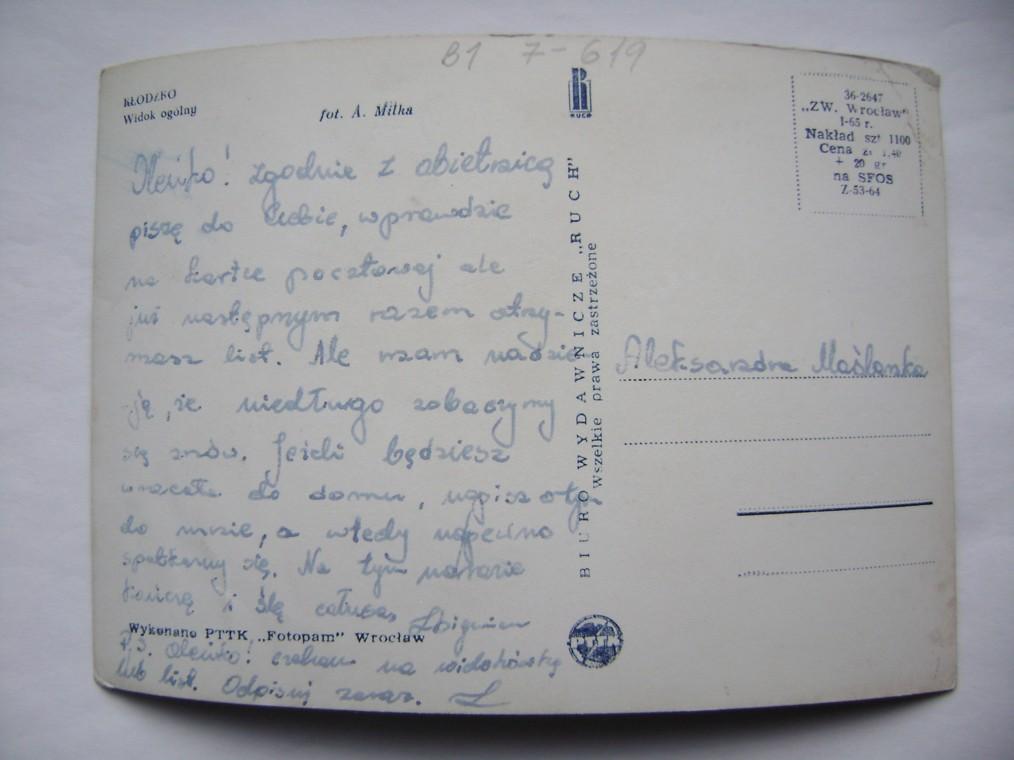 B1 7-619
KŁODZKO
Widok ogólny
fot. A. Miłka
RUCH
36-2647
„ZW. Wrocław"
I-65 r.
Nakład szt 1100
Cena zł 1,40
+ 20 gr
na SFOS
Z-53-64
Oleńko! Zgodnie z obietnicą
piszę do Ciebie, wprawdzie
na kartce pocztowej ale
już następnym razem otrzy-
masz list. Ale mam nadzie
ję, że niedługo zobaczymy
się znów. Jeśli będziesz
wracała do domu, napisz o tym
do mnie, a wtedy napewno
spotkamy się. Na tym narazie
kończę i ślę całusa, Zbigniew
Wykonano PTTK „Fotopam" Wrocław
P.S. Oleńko! czekam na widokówkę
lub list. Odpisuj zaraz. Z
BIURO WYDAWNICZE „RUCH"
Wszelkie prawa zastrzeżone
PTTK
Aleksandra Maślanka